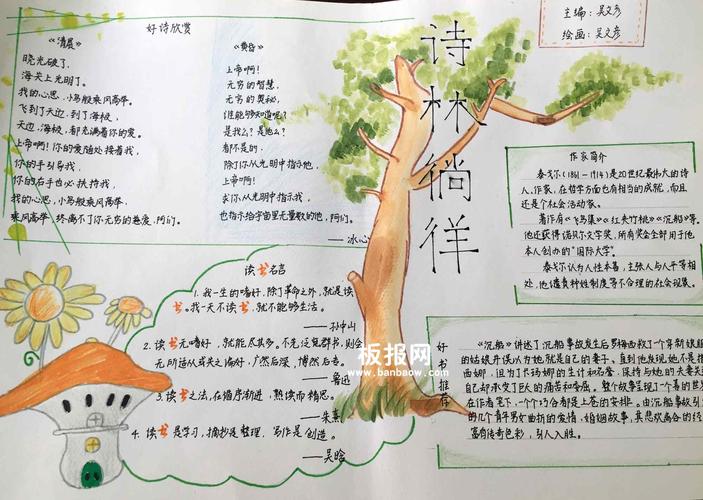 好诗欣赏
《清晨》
晓光破了,
海关上光明了。
我的心思,小鸟般乘风高举。
飞到了天边,到了海极,
天边,海极,都充满着你的爱。
上帝啊!你的爱随处接着我,
你的手引导我,
你的右手也必扶持我,
我的心思,小鸟般乘风高举,
乘风高举,终离不了你无穷的慈爱,阿们。
《黄昏》
上帝啊!
无穷的智慧,
无穷的奥秘,
谁能够知道呢?
是我么?是他么?
都不是的,
除了你从光明中指示他,
上帝啊!
求你从光明中指示我,
也指示给宇宙里无量数的他,阿们。
——冰心
诗林徜徉
主编:吴文彦
绘画:吴文彦
作家简介
泰戈尔(1861-1914)是20世纪最伟大的诗
人、作家,在哲学方面也有相当的成就,而且
还是个社会活动家。
著作有《飞鸟集》《红夹竹桃》《沉船》等。
他还获得诺贝尔文学奖,所有奖金全部用于他
本人创办的“国际大学”。
泰戈尔认为人性本善,主张人与人平等相
处,他谴责种姓制度等不合理的社会现象。
读书名言
1. 我一生的嗜好,除了革命之外,就是读
书。我一天不读书,就不能够生活。
——孙中山
2. 读书无嗜好,就能尽其多。不先泛览群书,则会
无所适从或失之偏好,广然后深,博然后专。
——鲁迅
3. 读书之法,在循序渐进,熟读而精思。
——朱熹
4. 读书是学习,摘抄是整理,写作是创造。
——吴晗
好书推荐
《沉船》讲述了沉船事故发生后罗梅西救了一个年新娘
的姑娘并误以为她就是自己的妻子。直到他发现她不是
西娜,但为了卡玛娜的生计和名誉,保持与她的夫妻关
自己却承受了巨大的痛苦和委屈。整个故事呈现了一个善的世界
在作者笔下,一个个巧合都是上苍的安排。由沉船事故引
的几个青年男女曲折的爱情、婚姻故事,其悲欢离合的经
富有传奇色彩,引人入胜。
板报网
www.banbaow.com